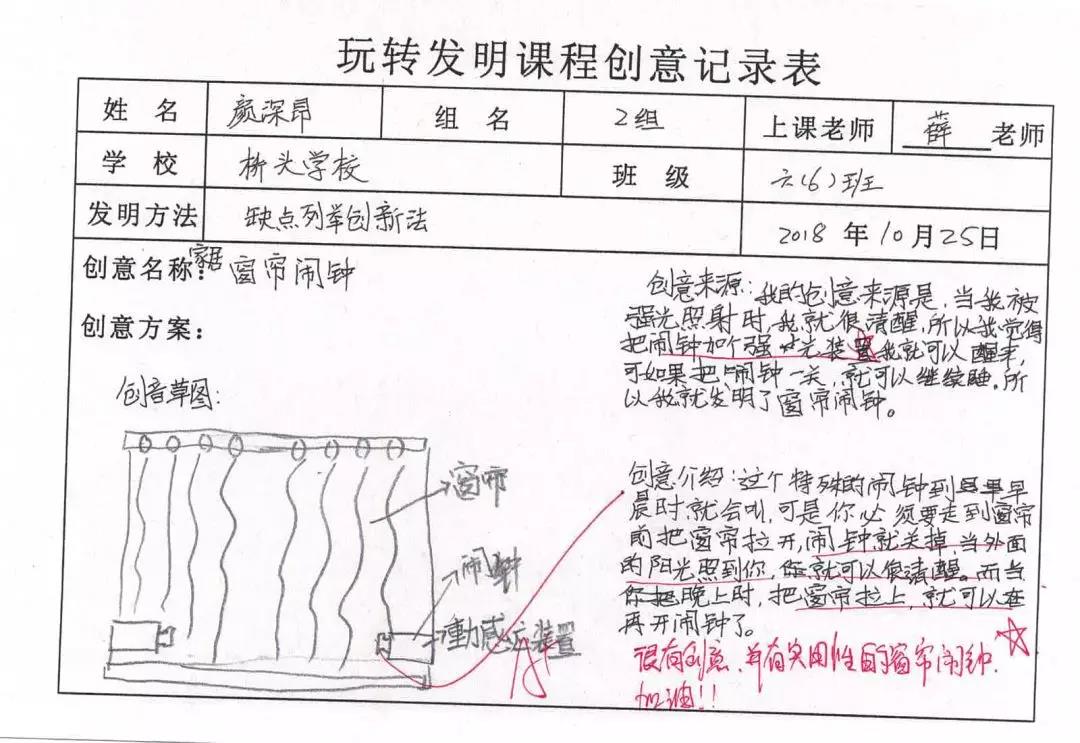 玩转发明课程创意记录表
姓 名 颜深昂 组 名 2组 上课老师 薛 老师
学 校 桥头学校 班 级 六(6)班
发明方法 缺点列举创新法 2018 年 10 月 25 日
创意名称：家居窗帘闹钟
创意方案：
创意草图：
窗帘
闹钟
動感应装置
创意来源：我的创意来源是，当我被
强光照射时，我就很清醒，所以我觉得
把闹钟加个强光装置我就可以醒来，
可如果把闹钟一关，就可以继续睡，所
以我就发明了窗帘闹钟。
创意介绍：这个特殊的闹钟到早
晨时就会叫，可是你必须要走到窗帘
前把窗帘拉开，闹钟就关掉，当外面
的阳光照到你，你就可以很清醒。而当
你把晚上时，把窗帘拉上，就可以在
再开闹钟了。
很有创意，并有实用性的窗帘闹钟，
加油！！